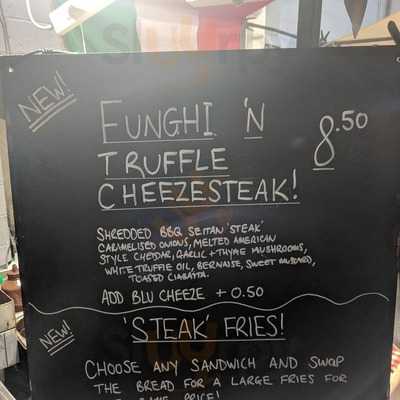 NEW!
FUNGHI 'N
TRUFFLE
CHEEZESTEAK!
8.50
SHREDDED BBQ SEITAN 'STEAK'
CARAMELISED ONIONS, MELTED AMERICAN
STYLE CHEDDAR, GARLIC + THYME MUSHROOMS,
WHITE TRUFFLE OIL, BERNAISE, SWEET MUSTARD,
TOASTED CIABATTA.
ADD BLU CHEEZE + 0.50
NEW!
'STEAK' FRIES!
CHOOSE ANY SANDWICH AND SWAP
THE BREAD FOR A LARGE FRIES FOR
PRICE!